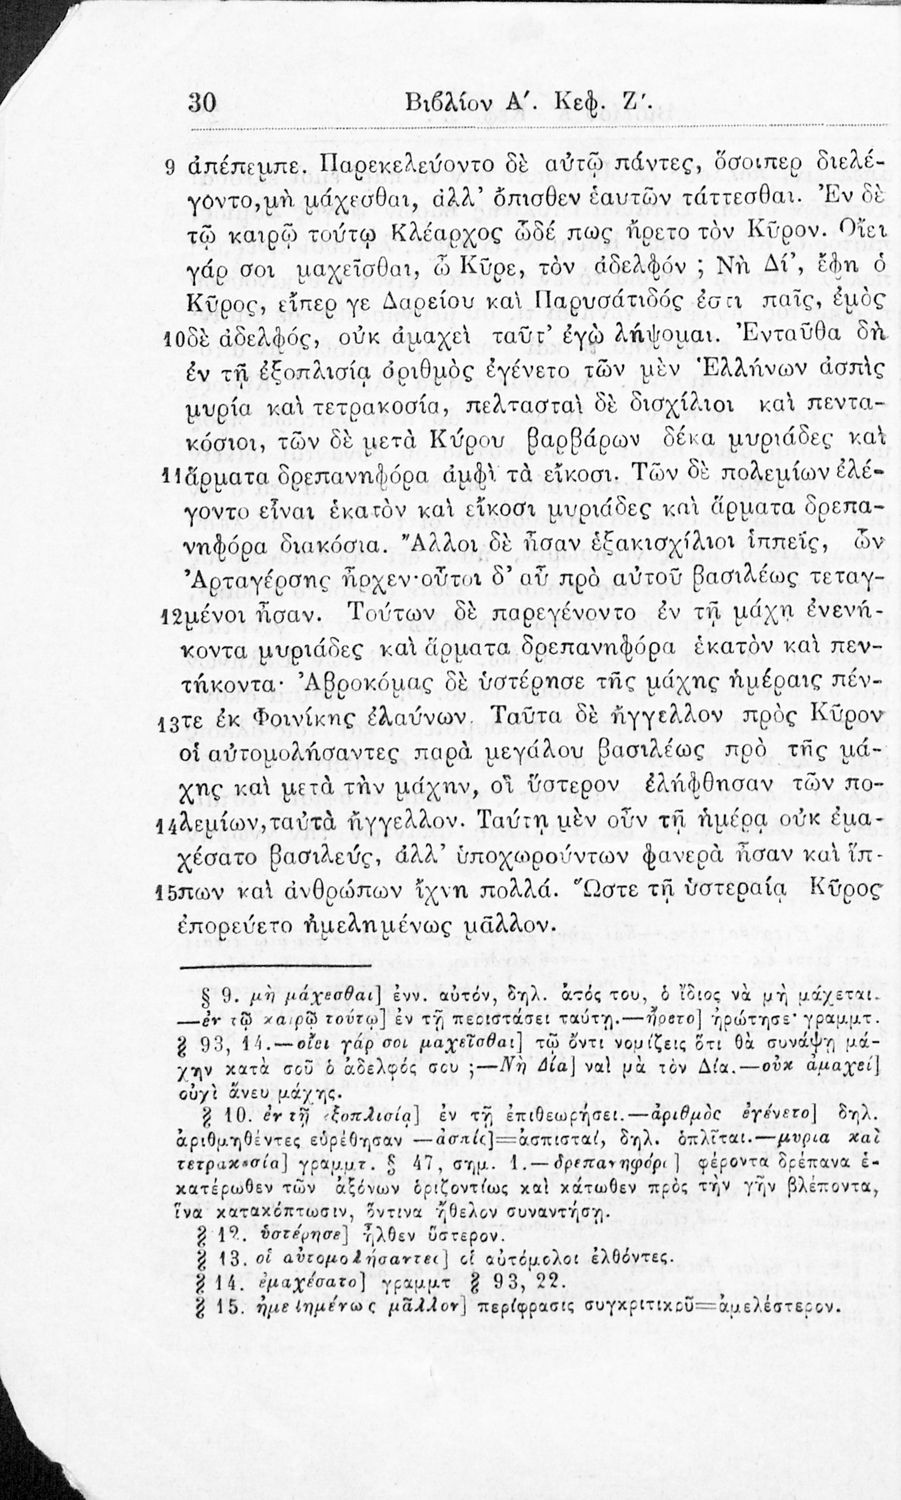 30 Βιβλίον Α΄. Κεφ. Ζ΄.
9 ἀπέπεμπε. Παρεκελεύοντο δὲ αὐτῷ πάντες, ὅσοιπερ διελέ-
γοντο, μὴ μάχεσθαι, ἀλλ’ ὄπισθεν ἑαυτῶν τάττεσθαι. Ἐν δὲ
τῷ καιρῷ τούτῳ Κλέαρχος ὧδέ πως ἤρετο τὸν Κῦρον. Οἴει
γάρ σοι μαχεῖσθαι, ὦ Κῦρε, τὸν ἀδελφόν ; Νὴ Δί’, ἔφη ὁ
Κῦρος, εἴπερ γε Δαρείου καὶ Παρυσάτιδός ἐστι παῖς, ἐμὸς
10 δὲ ἀδελφός, οὐκ ἀμαχεὶ ταῦτ’ ἐγὼ λήψομαι. Ἐνταῦθα δὴ
ἐν τῇ ἐξοπλισίᾳ ἀριθμὸς ἐγένετο τῶν μὲν Ἑλλήνων ἀσπὶς
μυρία καὶ τετρακοσία, πελτασταὶ δὲ δισχίλιοι καὶ πεντα-
κόσιοι, τῶν δὲ μετὰ Κύρου βαρβάρων δέκα μυριάδες καὶ
11 ἅρματα δρεπανηφόρα ἀμφὶ τὰ εἴκοσι. Τῶν δὲ πολεμίων ἐλέ-
γοντο εἶναι ἑκατὸν καὶ εἴκοσι μυριάδες καὶ ἅρματα δρεπα-
νηφόρα διακόσια. Ἄλλοι δὲ ἦσαν ἑξακισχίλιοι ἱππεῖς, ὧν
Ἀρταγέρσης ἦρχεν· οὗτοι δ’ αὖ πρὸ αὐτοῦ βασιλέως τεταγ-
12 μένοι ἦσαν. Τούτων δὲ παρεγένοντο ἐν τῇ μάχῃ ἐνενή-
κοντα μυριάδες καὶ ἅρματα δρεπανηφόρα ἑκατὸν καὶ πεν-
τήκοντα· Ἀβροκόμας δὲ ὑστέρησε τῆς μάχης ἡμέραις πέν-
13 τε ἐκ Φοινίκης ἐλαύνων. Ταῦτα δὲ ἤγγελλον πρὸς Κῦρον
οἱ αὐτομολήσαντες παρὰ μεγάλου βασιλέως πρὸ τῆς μά-
χης καὶ μετὰ τὴν μάχην, οἳ ὕστερον ἐλήφθησαν τῶν πο-
14 λεμίων, ταὐτὰ ἤγγελλον. Ταύτῃ μὲν οὖν τῇ ἡμέρᾳ οὐκ ἐμα-
χέσατο βασιλεύς, ἀλλ’ ὑποχωρούντων φανερὰ ἦσαν καὶ ἵπ-
15 πων καὶ ἀνθρώπων ἴχνη πολλά. Ὥστε τῇ ὑστεραίᾳ Κῦρος
ἐπορεύετο ἠμελημένως μᾶλλον.
§ 9. μὴ μάχεσθαι] ἐνν. αὐτόν, δηλ. ἀτός του, ὁ ἴδιος νὰ μὴ μάχεται.
—ἐν τῷ καιρῷ τούτῳ] ἐν τῇ περιστάσει ταύτῃ.—ἤρετο] ἠρώτησε· γραμμτ.
§ 93, 14.—οἴει γάρ σοι μαχεῖσθαι] τῷ ὄντι νομίζεις ὅτι θὰ συνάψῃ μά-
χην κατὰ σοῦ ὁ ἀδελφός σου ;—Νὴ Δία] ναὶ μὰ τὸν Δία.—οὐκ ἀμαχεί]
οὐχὶ ἄνευ μάχης.
§ 10. ἐν τῇ ἐξοπλισίᾳ] ἐν τῇ ἐπιθεωρήσει.—ἀριθμὸς ἐγένετο] δηλ.
ἀριθμηθέντες εὑρέθησαν —ἀσπὶς]=ἀσπισταί, δηλ. ὁπλῖται.—μυρια καὶ
τετρακοσία] γραμμτ. § 47, σημ. 1.—δρεπανηφόρα] φέροντα δρέπανα ἑ-
κατέρωθεν τῶν ἀξόνων ὁριζοντίως καὶ κάτωθεν πρὸς τὴν γῆν βλέποντα,
ἵνα κατακόπτωσιν, ὅντινα ἤθελον συναντήσῃ.
§ 12. ὑστέρησε] ἦλθεν ὕστερον.
§ 13. οἱ αὐτομολήσαντες] οἱ αὐτόμολοι ἐλθόντες.
§ 14. ἐμαχέσατο] γραμμτ § 93, 22.
§ 15. ἠμελημένως μᾶλλον] περίφρασις συγκριτικοῦ=ἀμελέστερον.